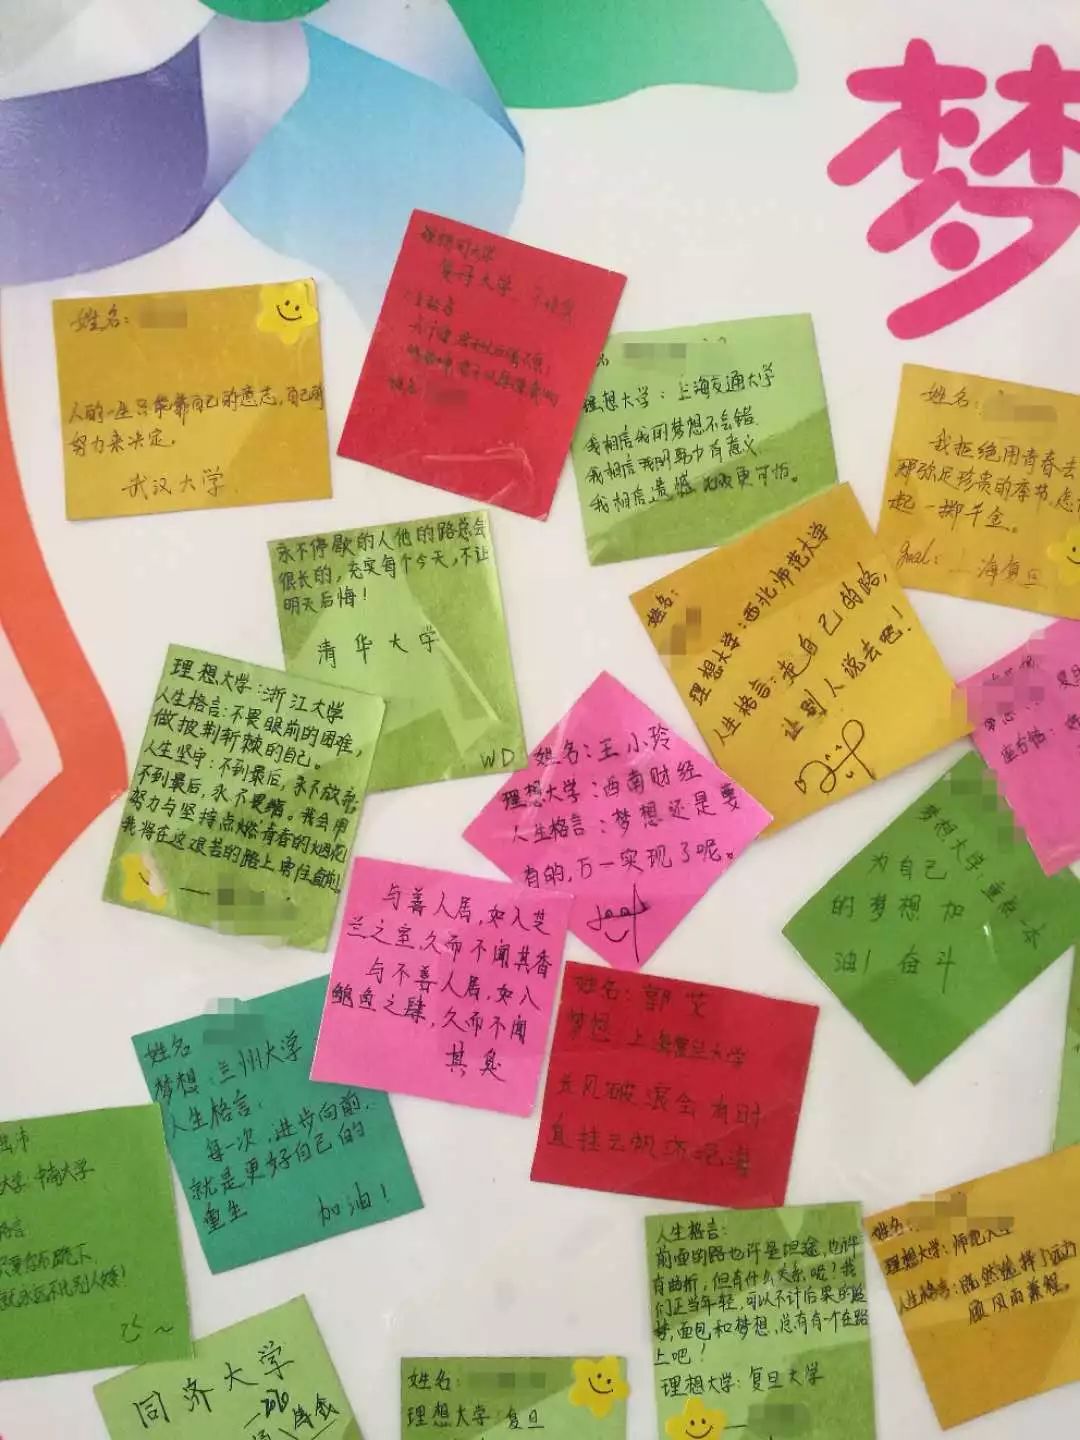 梦
姓名:
人的一生只能靠自己的意志,自己的
努力来决定。
武汉大学
理想大学
复旦大学
姓名
理想大学:上海交通大学
我相信我的梦想不会错
我相信我的努力有意义
我相信,遗憾比失败更可怕。
姓名:
我拒绝用青春去
那弥足珍贵的季节,怎
起一掷千金。
Goal:上海复旦
永不停歇的人他的路总会
很长的,充实每个今天,不让
明天后悔!
清华大学
WD
姓名:
理想大学:西北师范大学
人生格言:走自己的路,
让别人说去吧!
理想大学:浙江大学
人生格言:不畏眼前的困难,
做披荆斩棘的自己。
人生坚守:不到最后,永不放弃;
不到最后,永不畏缩。我会用
努力与坚持点燃青春的烟花
我将在这艰苦的路上勇往直前
姓名:王小玲
理想大学:西南财经
人生格言:梦想还是要
有的,万一实现了呢。
梦想大学:重
为自己
的梦想加
油!奋斗
与善人居,如入芝
兰之室,久而不闻其香
与不善人居,如入
鲍鱼之肆,久而不闻
其臭
姓名:郭艾
梦想:上海复旦大学
长风破浪会有时
直挂云帆济沧海
姓名
梦想:兰州大学
人生格言:
每一次,进步向前,
就是更好自己的
重生 加油!
大学:中南大学
格言
只要你不跪下
就永远不比别人矮!
人生格言:
前面的路也许是坦途,也许
有曲折,但有什么关系呢?我
们正当年轻,可以不计后果的追
梦,面包和梦想,总有一个在路
上吧!
理想大学:复旦大学
姓名:
理想大学:师范大学
人生格言:既然选择了远方
顾风雨兼程。
同济大学
姓名:
理想大学:复旦